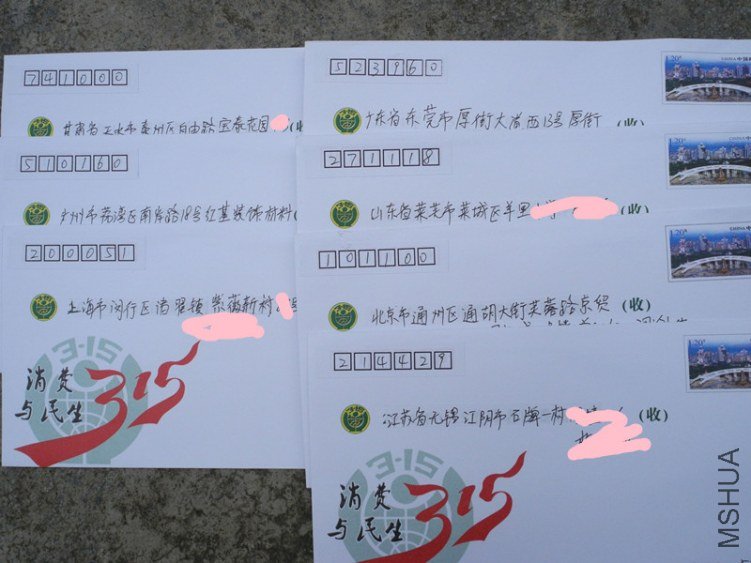 741000
甘肃省天水市秦州区自由路宝泰花园
510160
广州市荔湾区南岸路18号红基装饰材料
200051
上海市闵行区诸翟镇紫薇新村
3·15
消费
与民生
315
523960
1.20元
CHINA 中国邮政
广东省东莞市厚街大道西13号厚街 (收)
271118
1.20元
山东省莱芜市莱城区羊里 (收)
101100
1.20元
北京市通州区通胡大街芙蓉路京贸 (收)
214429
江苏省无锡江阴市石牌一村 (收)
3·15
消费
与民生
315
MSHUA